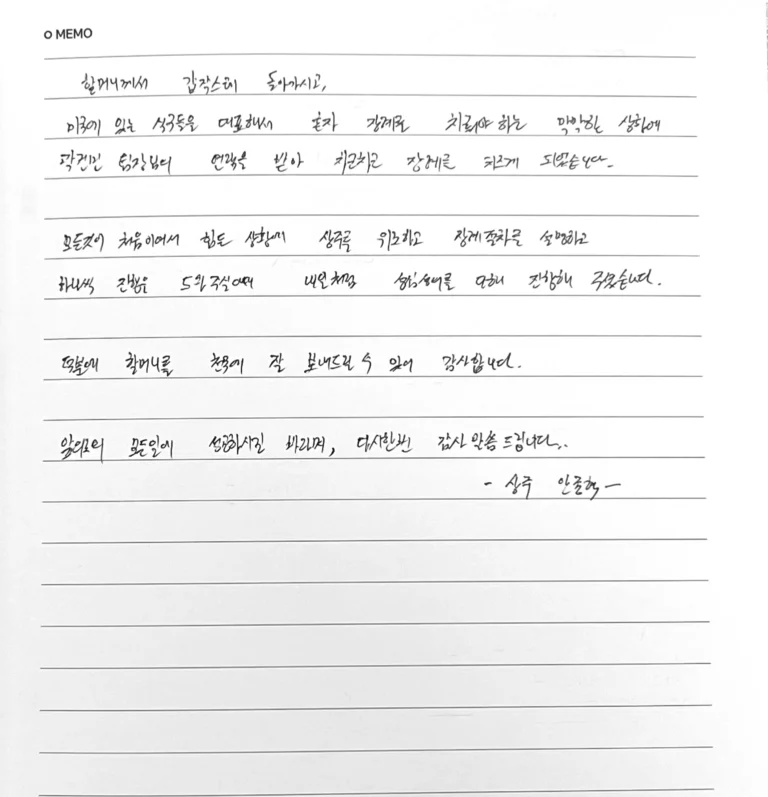 MEMO
할머니께서 갑작스레 돌아가시고,
미국에 있는 식구들을 대표해서 혼자 장례를 치뤄야 하는 막막한 상황에
곽건민 팀장님의 연락을 받아 치르게 되었습니다.
모든것이 처음이어서 힘든 상황에 상주를 위로하고 장례절차를 설명하고
하나씩 진행을 도와주실때에 내일처럼 성심성의를 다해 진행해 주셨습니다.
덕분에 할머니를 천국에 잘 보내드릴 수 있어 감사합니다.
앞으로의 모든일에 성공하시길 바라며, 다시한번 감사 말씀 드립니다..
- 상주 -